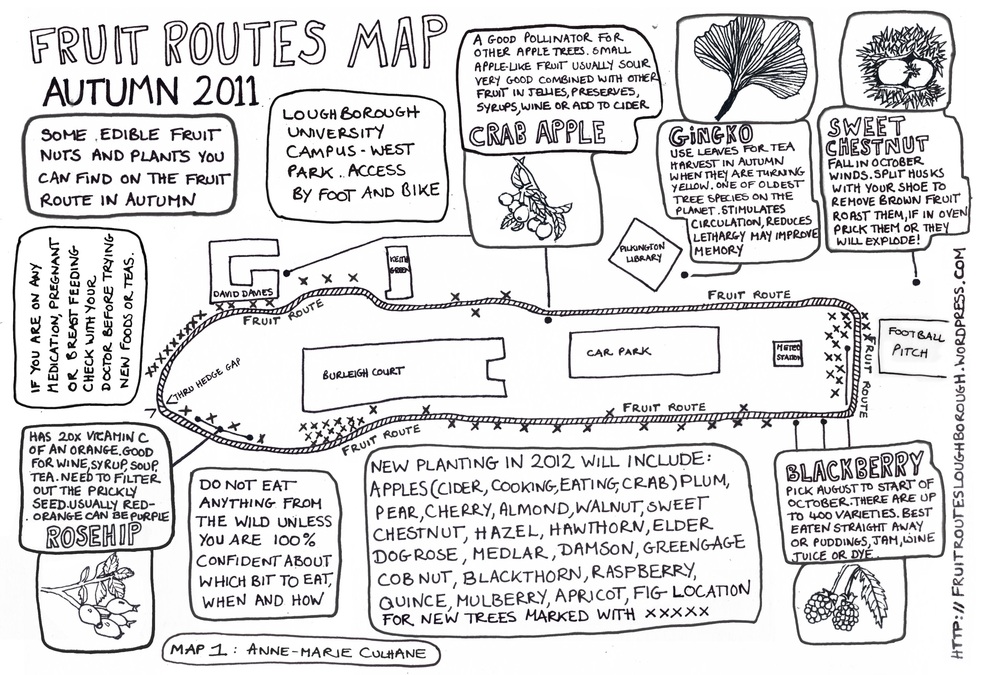 FRUIT ROUTES MAP
AUTUMN 2011
SOME EDIBLE FRUIT
NUTS AND PLANTS YOU
CAN FIND ON THE FRUIT
ROUTE IN AUTUMN
LOUGHBOROUGH
UNIVERSITY
CAMPUS - WEST
PARK.. ACCESS
BY FOOT AND BIKE
A GOOD POLLINATOR FOR
OTHER APPLE TREES. SMALL
APPLE-LIKE FRUIT USUALLY SOUR
VERY GOOD COMBINED WITH OTHER
FRUIT IN JELLIES, PRESERVES,
SYRUPS, WINE OR ADD TO CIDER
CRAB APPLE
GINGKO
USE LEAVES FOR TEA
HARVEST IN AUTUMN
WHEN THEY ARE TURNING
YELLOW. ONE OF OLDEST
TREE SPECIES ON THE
PLANET. STIMULATES
CIRCULATION, REDUCES
LETHARGY MAY IMPROVE
MEMORY
SWEET
CHESTNUT
FALL IN OCTOBER
WINDS. SPLIT HUSKS
WITH YOUR SHOE TO
REMOVE BROWN FRUIT
ROAST THEM, IF IN OVEN
PRICK THEM OR THEY
WILL EXPLODE!
IF YOU ARE ON ANY
MEDICATION, PREGNANT
OR BREAST FEEDING
CHECK WITH YOUR
DOCTOR BEFORE TRYING
NEW FOODS OR TEAS.
DAVID DAVIES
KEITH
GREEN
PILKINGTON
LIBRARY
FRUIT ROUTE
FRUIT ROUTE
THRU HEDGE GAP
BURLEIGH COURT
CAR PARK
METEO
STATION
FRUIT ROUTE
FOOTBALL
PITCH
FRUIT ROUTE
FRUIT ROUTE
HAS 20X VITAMIN C
OF AN ORANGE. GOOD
FOR WINE, SYRUP, SOUP,
TEA. NEED TO FILTER
OUT THE PRICKLY
SEED. USUALLY RED-
ORANGE CAN BE PURPLE
ROSEHIP
DO NOT EAT
ANYTHING FROM
THE WILD UNLESS
YOU ARE 100%
CONFIDENT ABOUT
WHICH BIT TO EAT,
WHEN AND HOW
NEW PLANTING IN 2012 WILL INCLUDE:
APPLES (CIDER, COOKING, EATING, CRAB) PLUM,
PEAR, CHERRY, ALMOND, WALNUT, SWEET
CHESTNUT, HAZEL, HAWTHORN, ELDER
DOGROSE, MEDLAR, DAMSON, GREENGAGE
COBNUT, BLACKTHORN, RASPBERRY,
QUINCE, MULBERRY, APRICOT, FIG - LOCATION
FOR NEW TREES MARKED WITH XXXXX
BLACKBERRY
PICK AUGUST TO START OF
OCTOBER. THERE ARE UP
TO 400 VARIETIES. BEST
EATEN STRAIGHT AWAY
OR PUDDINGS, JAM, WINE
JUICE OR DYE.
HTTP://FRUITROUTESLOUGHBOROUGH.WORDPRESS.COM
MAP 1: ANNE-MARIE CULHANE